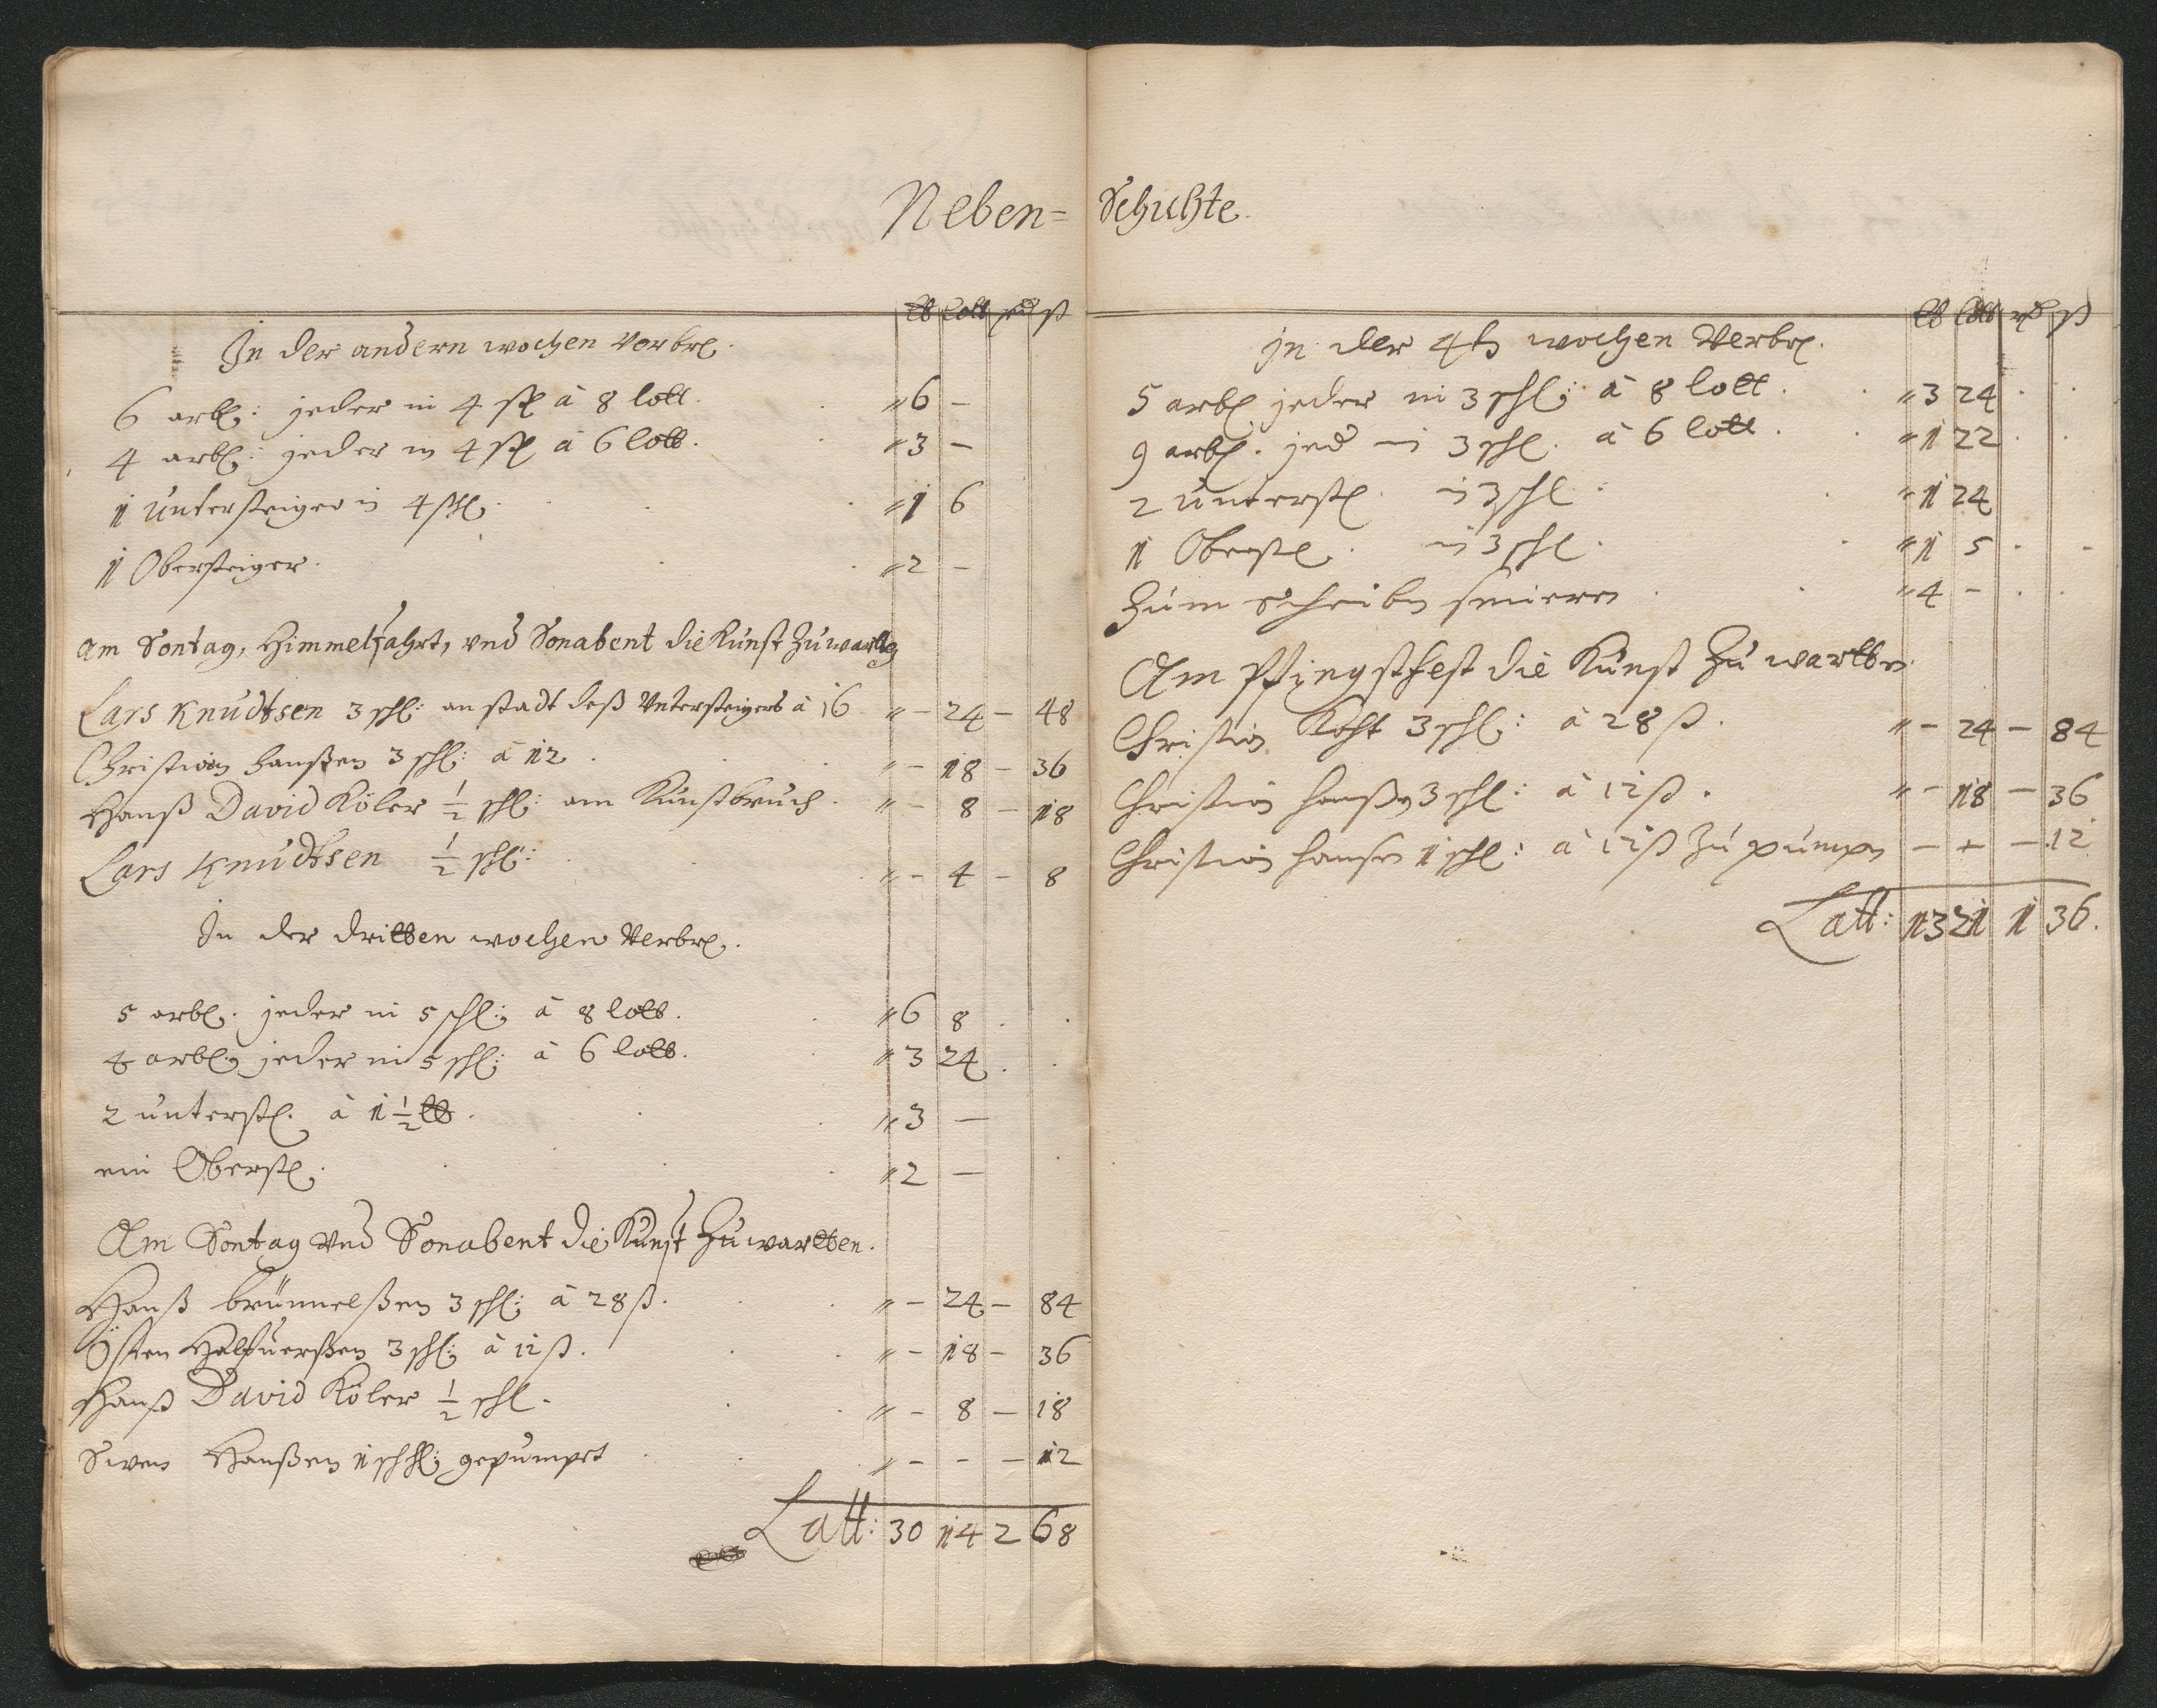 Neben= Schichte.
lb lott rd ß
In der andern wochen Verbr.
6 arb: jeder in 4 sch à 8 lott. "6 –
4 arb: jeder in 4 sch à 6 lott. "3 –
1 Untersteiger in 4 schl. "1 6
1 Obersteiger. "2 –
Am Sontag, Himmelfahrt, vnd Sonabent die Kunst Zu warten
Lars Knudtsen 3 schl: anstadt deß Vntersteigers à 16 " – 24 – 48
Christian Hanßen 3 schl: à 12. " – 18 – 36
Hanß David Köler ½ schl: am Kunstbruch. " – 8 – 18
Lars Knudtsen ½ schl: " – 4 – 8
In der dritten wochen Verbr.
5 arb. jeder in 5 schl: à 8 lott. "6 8
4 arb. jeder in 5 schl: à 6 lott. "3 24
2 unterst. à 1 ½ lb. "3 –
ein Oberst. "2 –
Am Sontag vnd Sonabent die Kunst Zu wartten.
Hanß Brünnelßen 3 schl: à 28 ß. " – 24 – 84
Östen Halfuerßen 3 schl: à 12 ß. " – 18 – 36
Hanß David Köler ½ schl. " – 8 – 18
Swen Hanßen 1 schl: gepumpet " – – – 12
Latt: 30 14 2 68
lb lott rd ß
In der 4t wochen Verbr.
5 arb jeder in 3 schl: à 8 lott. "3 24
9 arb. jed in 3 schl. à 6 lott. "1 22
2 unterst in 3 schl. "1 24
1 Oberst. in 3 schl. "1 5
Zum scheiben smieren "4 –
Am Pfingstfest die Kunst Zu wartten.
Christian Koht 3 schl: à 28 ß. " – 24 – 84
Christian Hanßen 3 schl: à 12 ß. " – 18 – 36
Christian Hansen 1 schl: à 12 ß Zu pumpen – + – 12
Latt: 13 21 1 36.